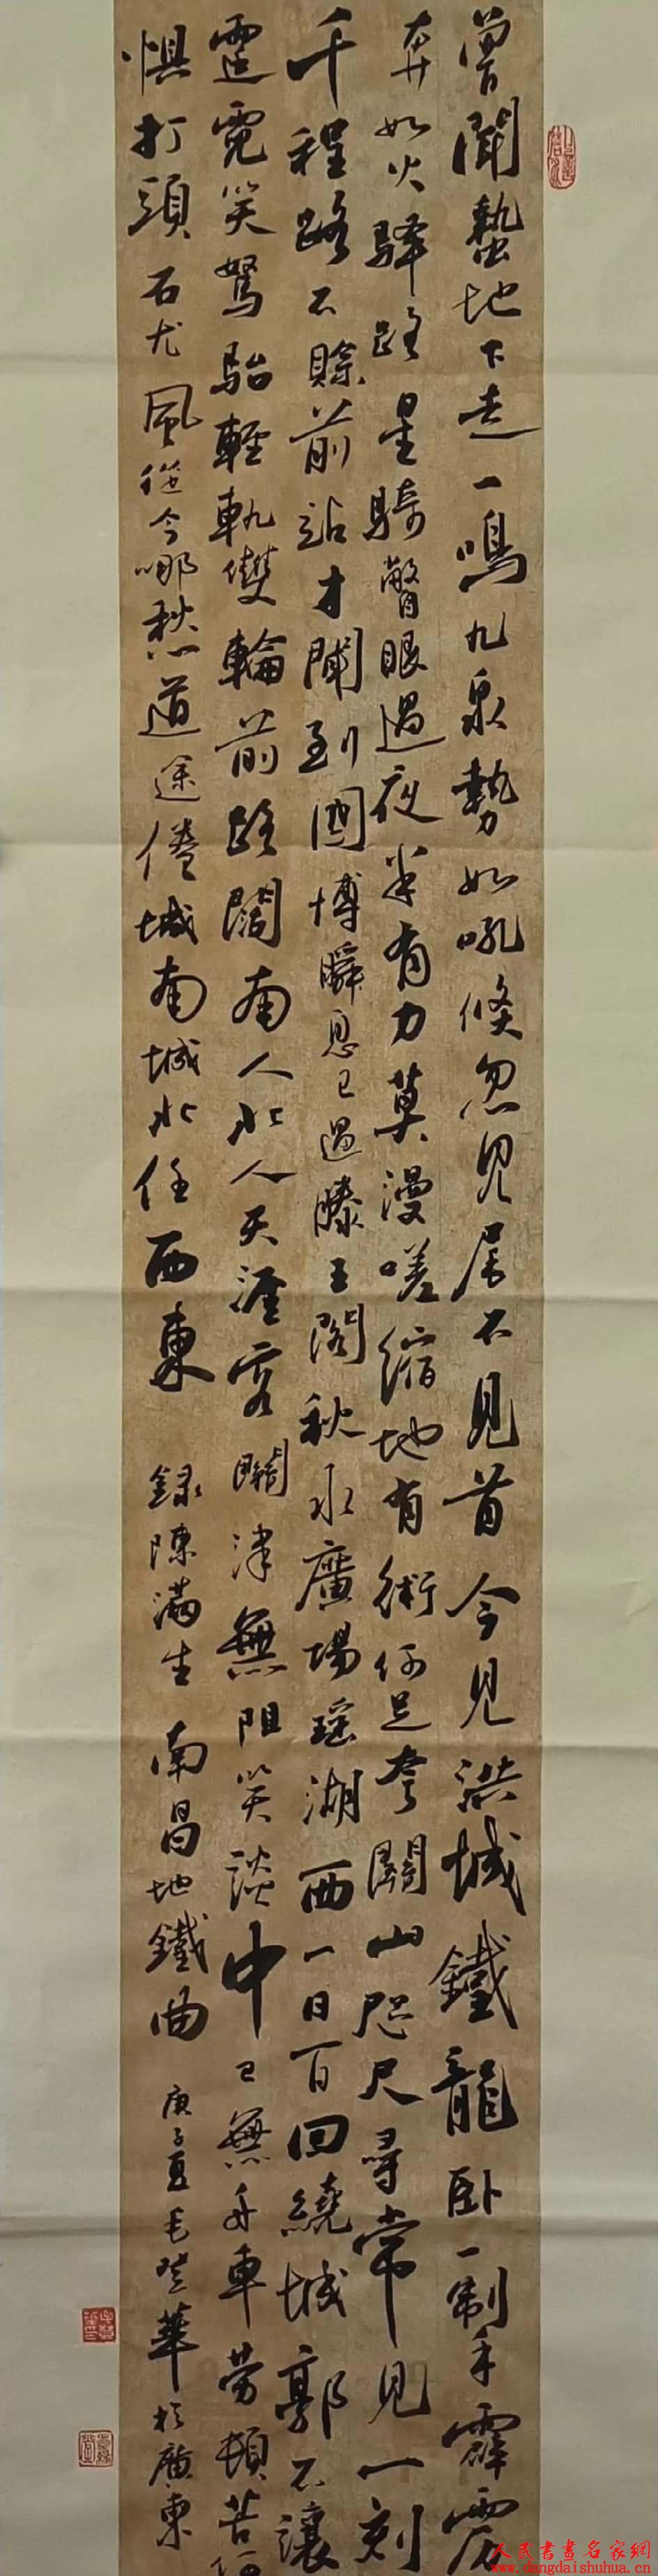 曾聞蟄地下走一鳴九泉勢如吼倏忽見尾不見首今見洪城鐵龍卧一制手霹靂
奔如火驛路星騎瞥眼過夜半有力莫漫嗟縮地有術何足夸關山咫尺尋常見一刻
千程路不賒前站才聞到國博瞬息已過滕王閣秋水廣場瑤湖西一日百回繞城郭不讓
霓笑駑駘輕軌雙輪前路闊南人北人天涯客關津無阻笑談中已無舟車勞頓苦何
懼打頭石尤風從今哪愁道途倦城南城北任西東 錄陳滿生 南昌地鐵曲 庚子夏毛登華於廣東
人民書畫名家網
www.dangdaishuhua.cn